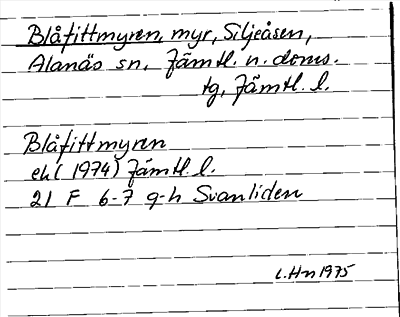 Blåfittmyren, myr, Siljeåsen,
Alanäs sn, Jämtl. n. doms.
tg, Jämtl. l.
Blåfittmyren
ek (1974) Jämtl. l.
21 F 6-7 g-h Svanliden
L.Hn 1975